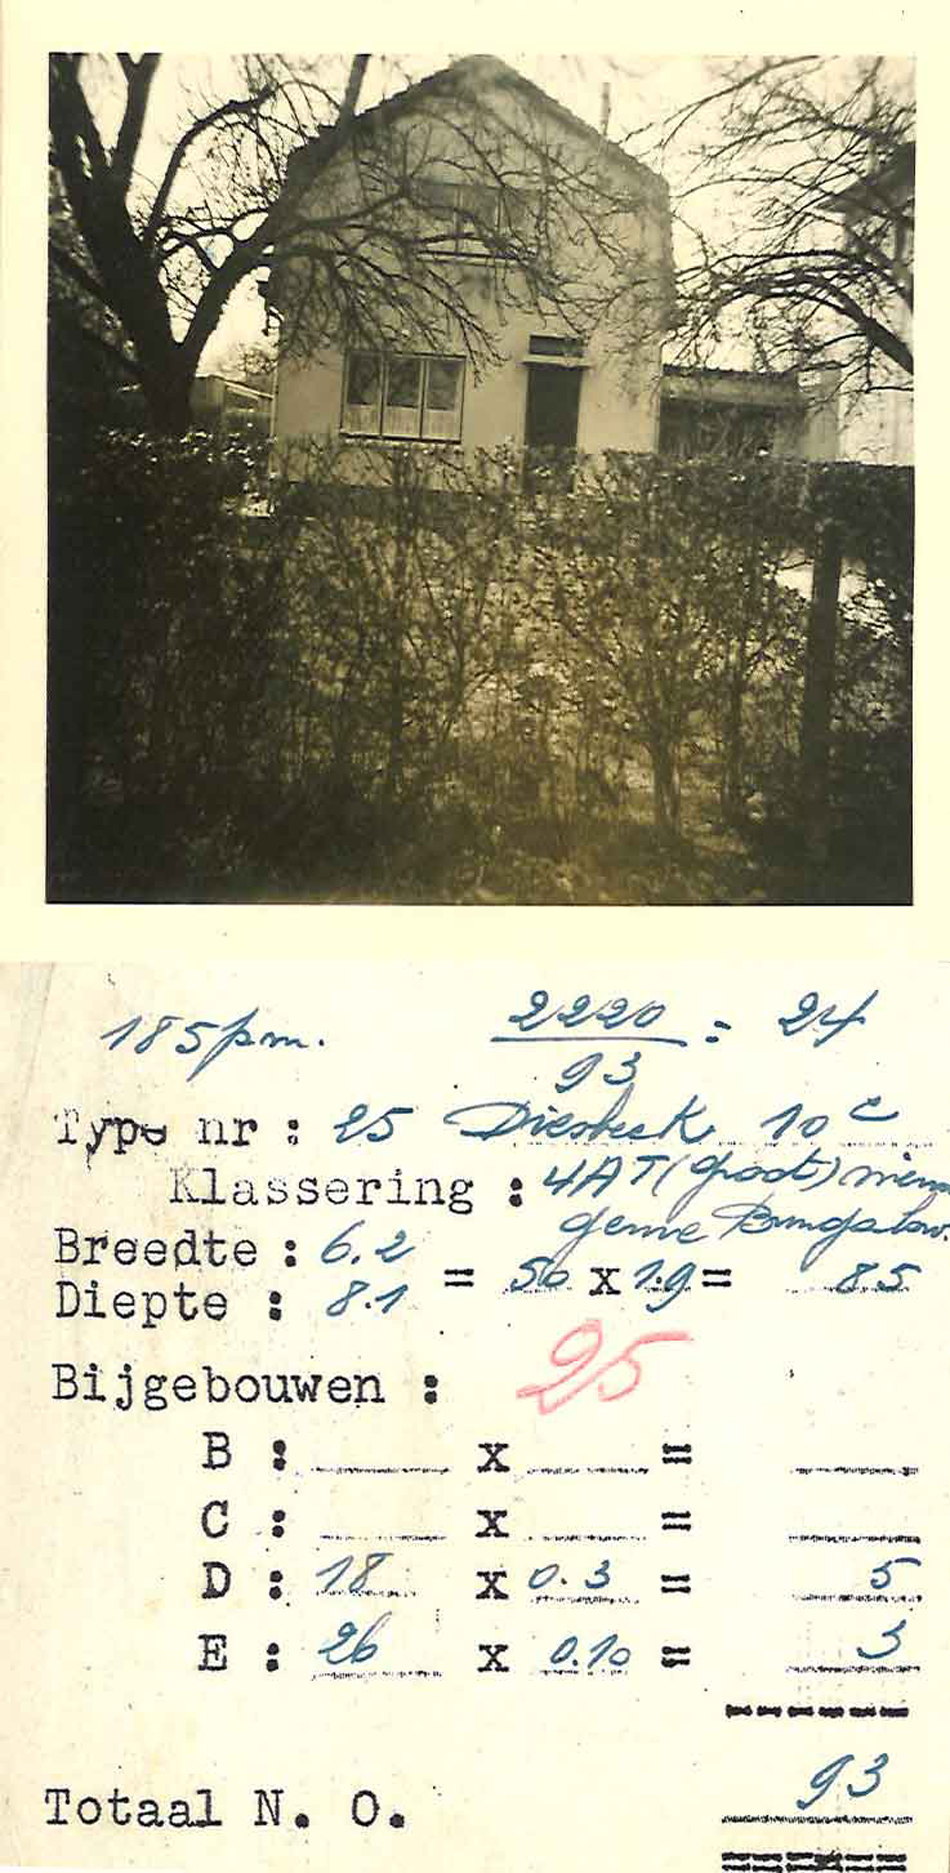 185 pm.
2220 = 24
93
Type nr : 25 Diesbeek 10 c
Klassering : 4AT (groot)
Bungalow.
Breedte : 6.2
= 50 x 1.9 = 85
Diepte : 8.1
Bijgebouwen : 25
B : x =
C : x =
D : 18 x 0.3 = 5
E : 26 x 0.10 = 3
93
Totaal N. O.